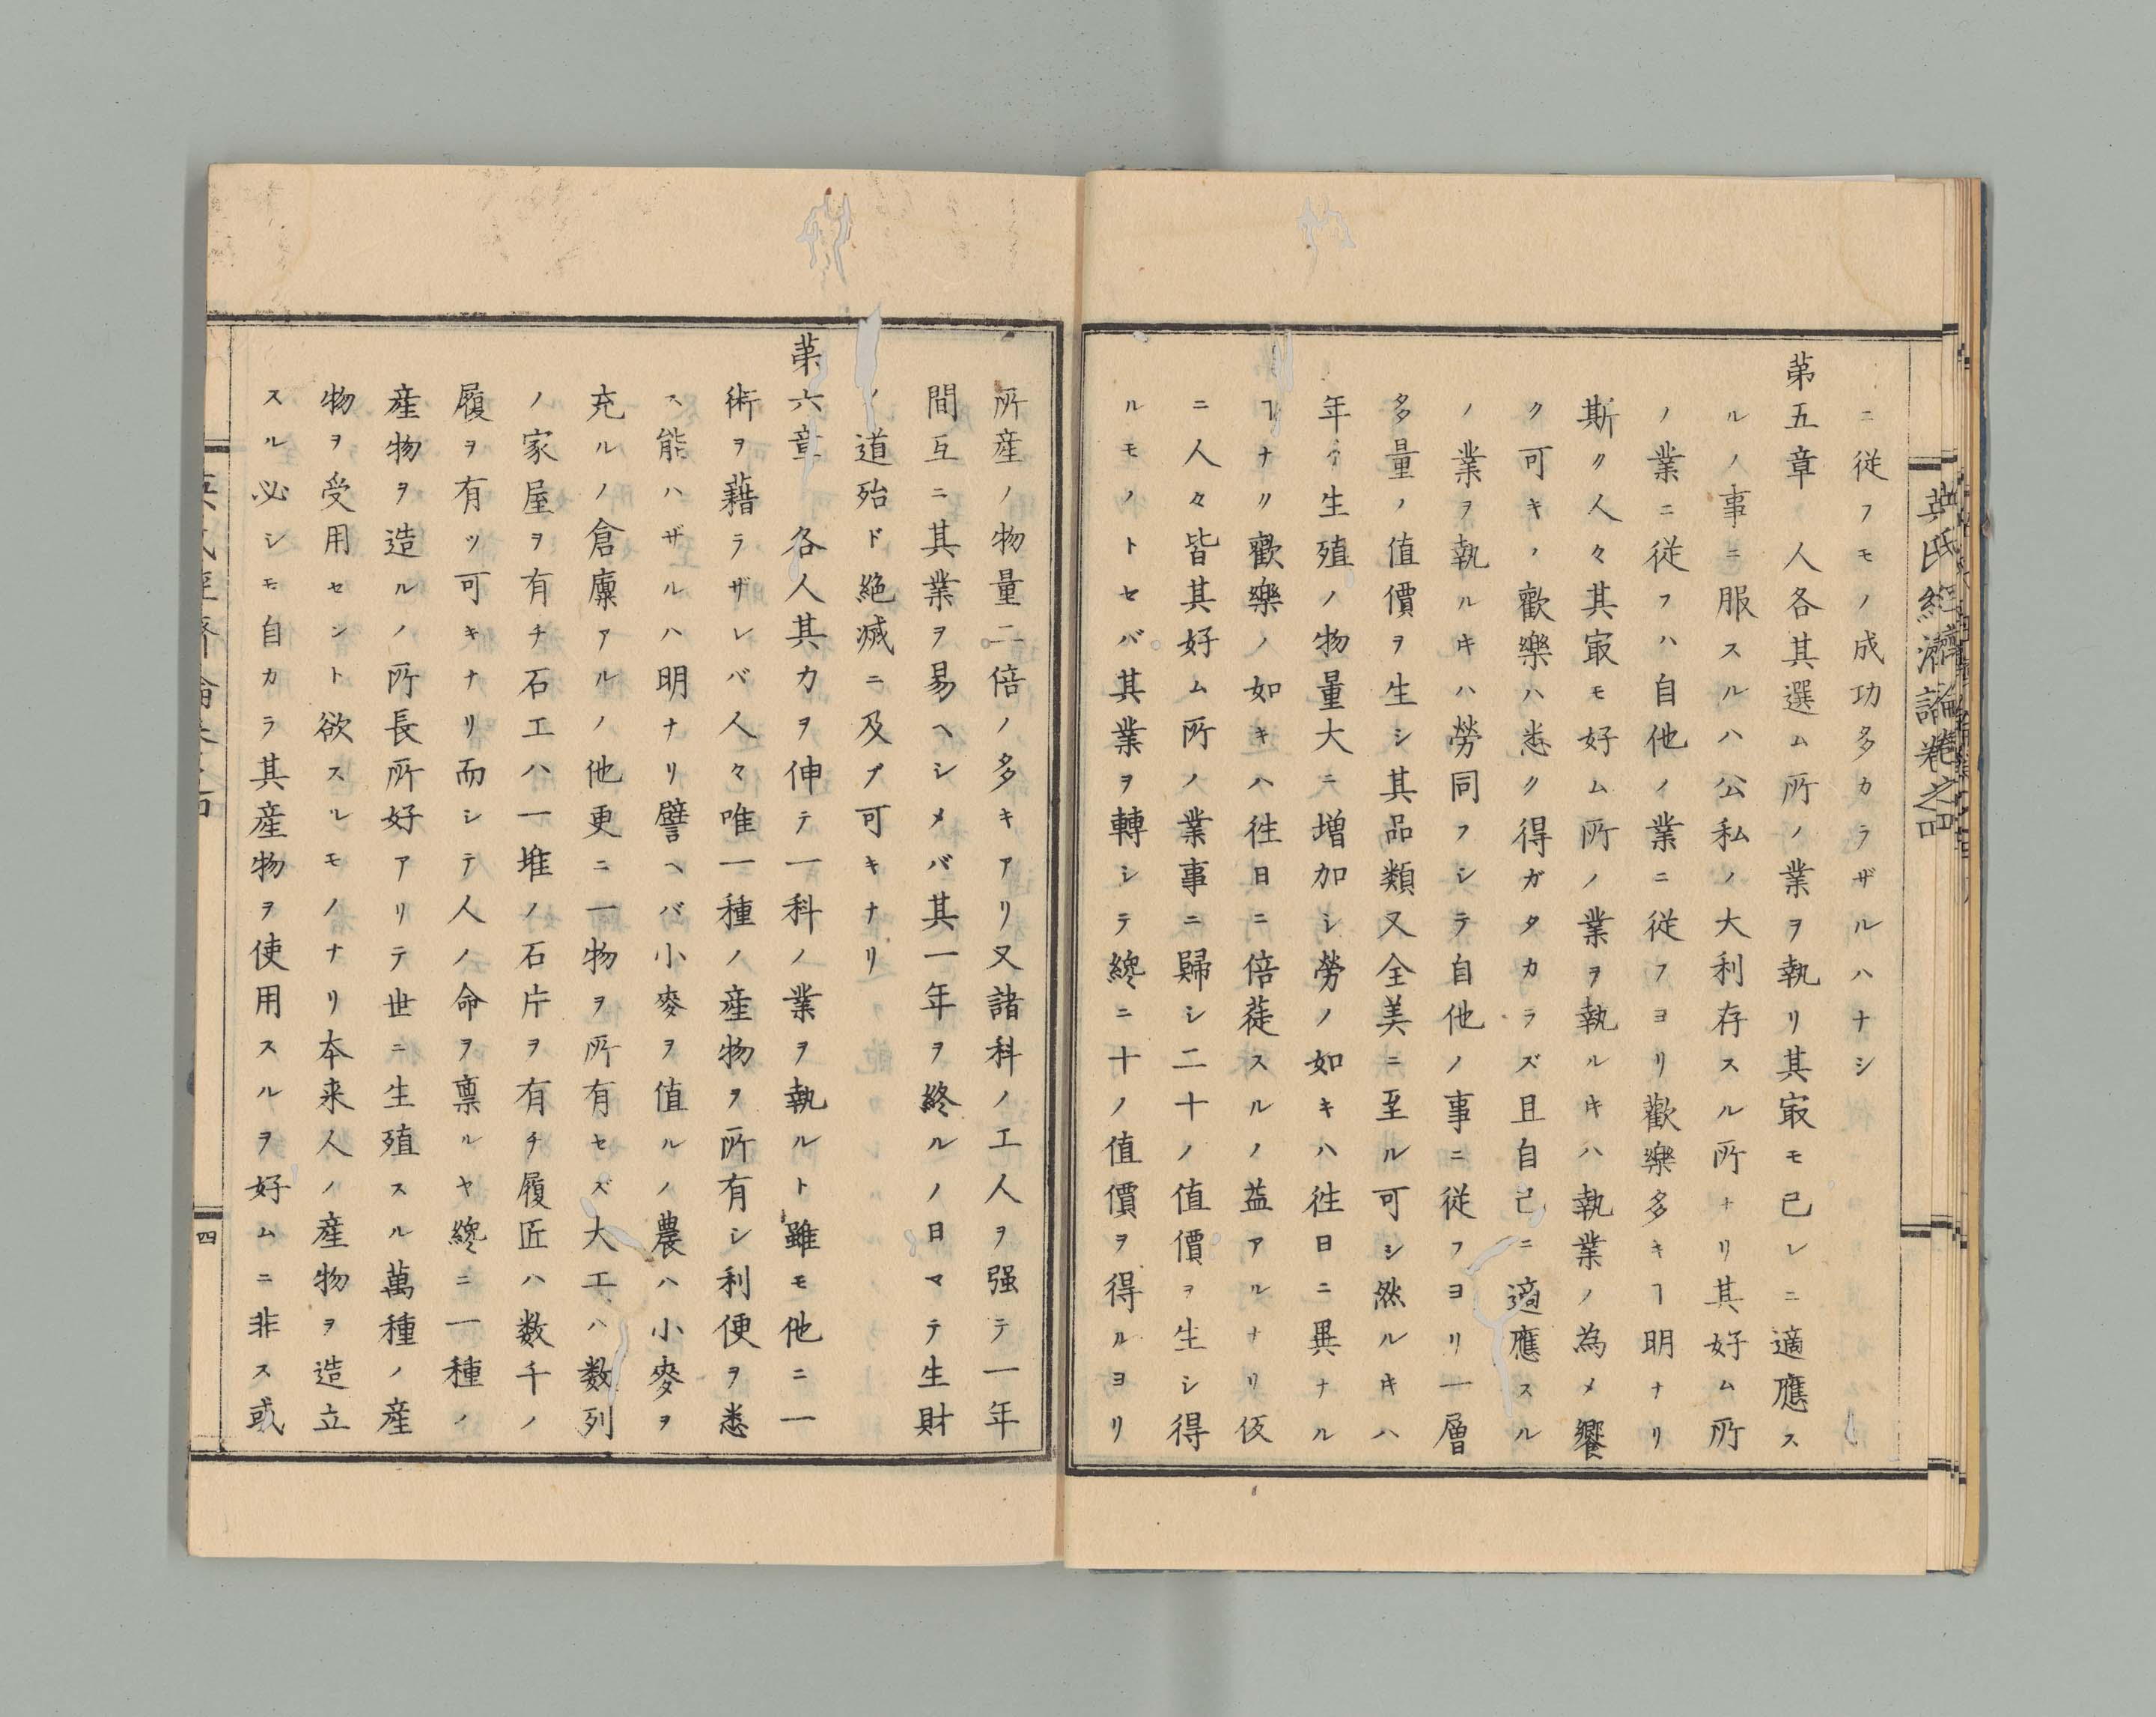 ニ従フモノ成功多カラザルハナシ
第五章 人各其選ム所ノ業ヲ執リ其㝡モ己レニ適應ス
ルノ事ニ服スルハ公私ノ大利存スル所ナリ其好ム所
ノ業ニ従フハ自他ノ業ニ従フヨリ歡樂多キヿ明ナリ
斯ク人々其㝡モ好ム所ノ業ヲ執ルキハ執業ノ為メ饗
ク可キノ歡樂ハ悉ク得ガタカラズ且自己ニ適應スル
ノ業ヲ執ルキハ勞同フシテ自他ノ事ニ従フヨリ一層
多量ノ値價ヲ生シ其品類又全美ニ至ル可シ然ルキハ
年々生殖ノ物量大ニ増加シ勞ノ如キハ徃日ニ異ナル
ヿナク歡樂ノ如キハ徃日ニ倍蓰スルノ益アルナリ仮
ニ人々皆其好ム所ノ業事ニ歸シ二十ノ値價ヲ生シ得
ルモノトセバ其業ヲ轉シテ纔ニ十ノ値價ヲ得ルヨリ
所産ノ物量二倍ノ多キアリ又諸科ノ工人ヲ强テ一年
間互ニ其業ヲ易ヘシメバ其一年ヲ終ルノ日マテ生財
ノ道殆ド絶滅ニ及ブ可キナリ
第六章 各人其力ヲ伸テ一科ノ業ヲ執ルト雖モ他ニ一
術ヲ藉ラザレバ人々唯一種ノ産物ヲ所有シ利便ヲ悉
ス能ハザルハ明ナリ譬ヘバ小麥ヲ値ルノ農ハ小麥ヲ
充ルノ倉廪アルノ他更ニ一物ヲ所有セズ大工ハ数列
ノ家屋ヲ有チ石工ハ一堆ノ石片ヲ有チ履匠ハ数千ノ
履ヲ有ツ可キナリ而シテ人ノ命ヲ稟ルヤ纔ニ一種ノ
産物ヲ造ルノ所長所好アリテ世ニ生殖スル萬種ノ産
物ヲ受用セント欲スルモノナリ夲来人ノ産物ヲ造立
スル必シモ自カラ其産物ヲ使用スルヲ好ムニ非ス或
四